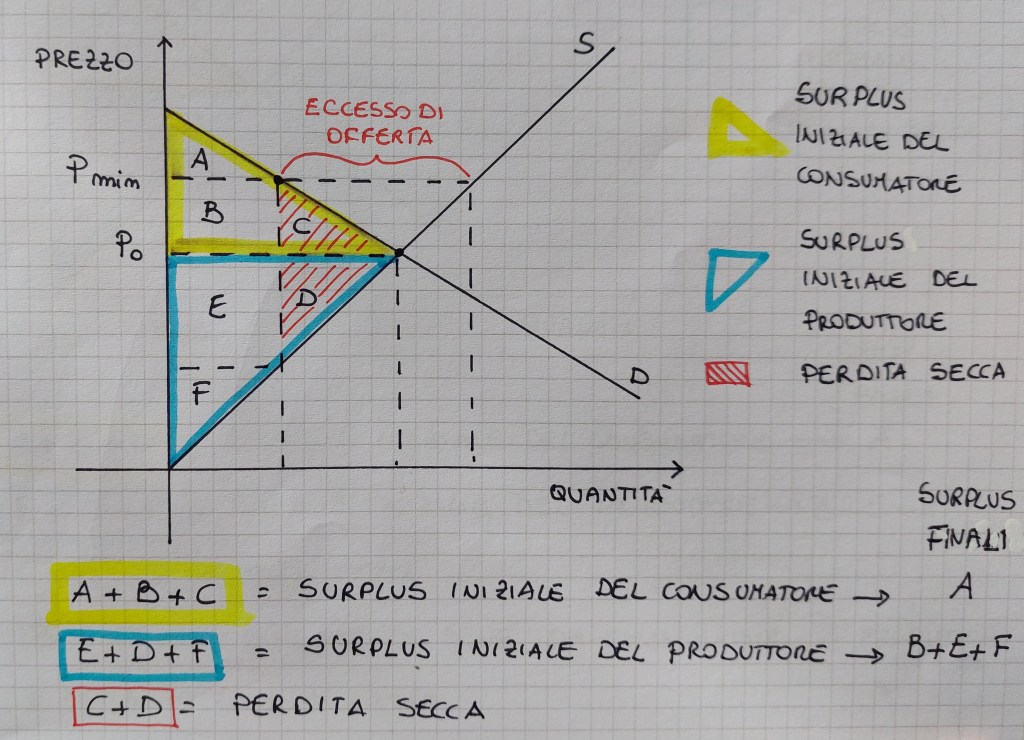 PREZZO
S
ECCESSO DI
OFFERTA
Pmin
A
B
C
P0
E
D
F
D
QUANTITÀ
SURPLUS
INIZIALE DEL
CONSUMATORE
SURPLUS
INIZIALE DEL
PRODUTTORE
PERDITA SECCA
SURPLUS
FINALI
A + B + C = SURPLUS INIZIALE DEL CONSUMATORE → A
E + D + F = SURPLUS INIZIALE DEL PRODUTTORE → B+E+F
C+D = PERDITA SECCA